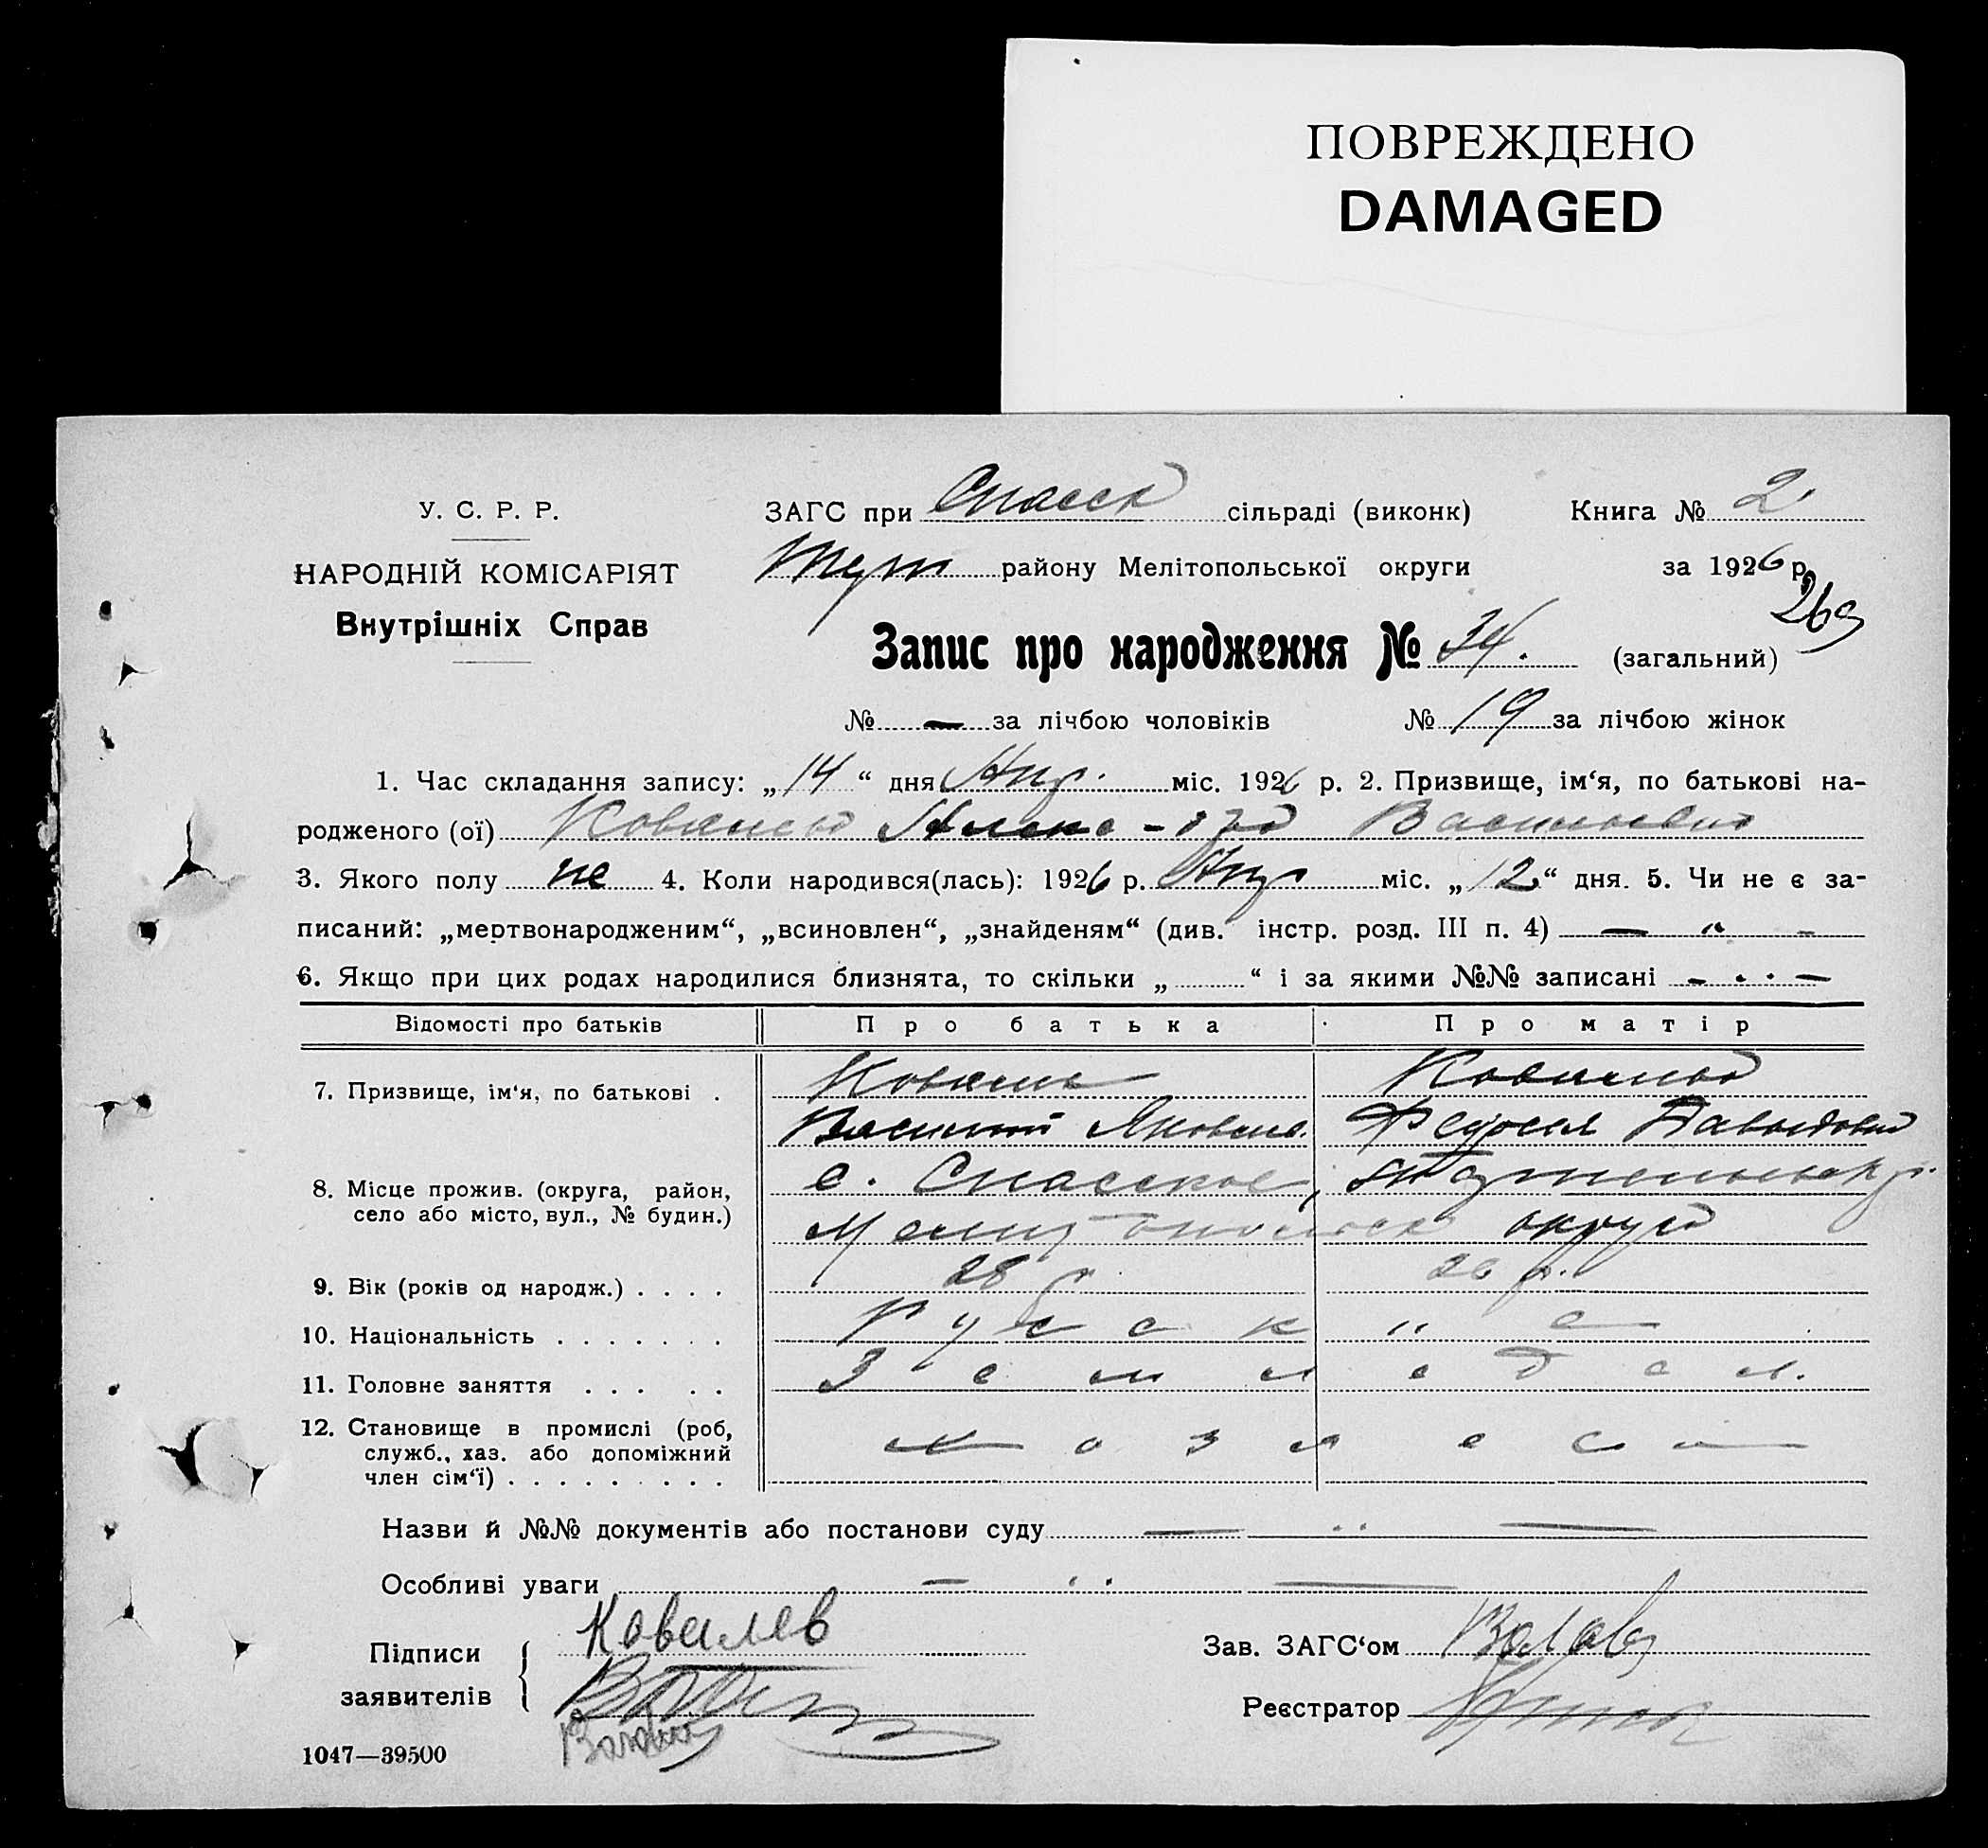 ПОВРЕЖДЕНО
DAMAGED
У. С. Р. Р.
НАРОДНІЙ КОМІСАРІЯТ
Внутрішніх Справ
ЗАГС при Спасск сільраді (виконк) Книга № 2
району Мелітопольської округи за 1926 р.
269
Запис про народження № 34. (загальний)
№ — за лічбою чоловіків № 19 за лічбою жінок
1. Час складання запису: „14“ дня Апр. міс. 1926 р. 2. Призвище, ім‘я, по батькові на-
родженого (ої)
3. Якого полу 4. Коли народився(лась): 1926 р. Апр міс. „12“ дня. 5. Чи не є за-
писаний: „мертвонародженим“, „всиновлен“, „знайденям“ (див. інстр. розд. III п. 4) — „ —
6. Якщо при цих родах народилися близнята, то скільки „ “ і за якими №№ записані — · · —
Відомості про батьків Про батька Про матір
7. Призвище, ім‘я, по батькові .
Василий Яковлев. Федосия Давидовна
8. Місце прожив. (округа, район,
село або місто, вул., № будин.)
с. Спасское,
округа
9. Вік (років од народж.) . . . . 28 р. 26 р.
10. Національність . . . . . . . Русск „
11. Головне заняття . . . . . Земледел.
12. Становище в промислі (роб,
служб., хаз. або допоміжний
член сім‘ї) . . . . . . . . .
Назви й №№ документів або постанови суду — „ —
Особливі уваги — „ —
Підписи
заявителів
Ковалев
Зав. ЗАГС‘ом
Реєстратор
1047—39500